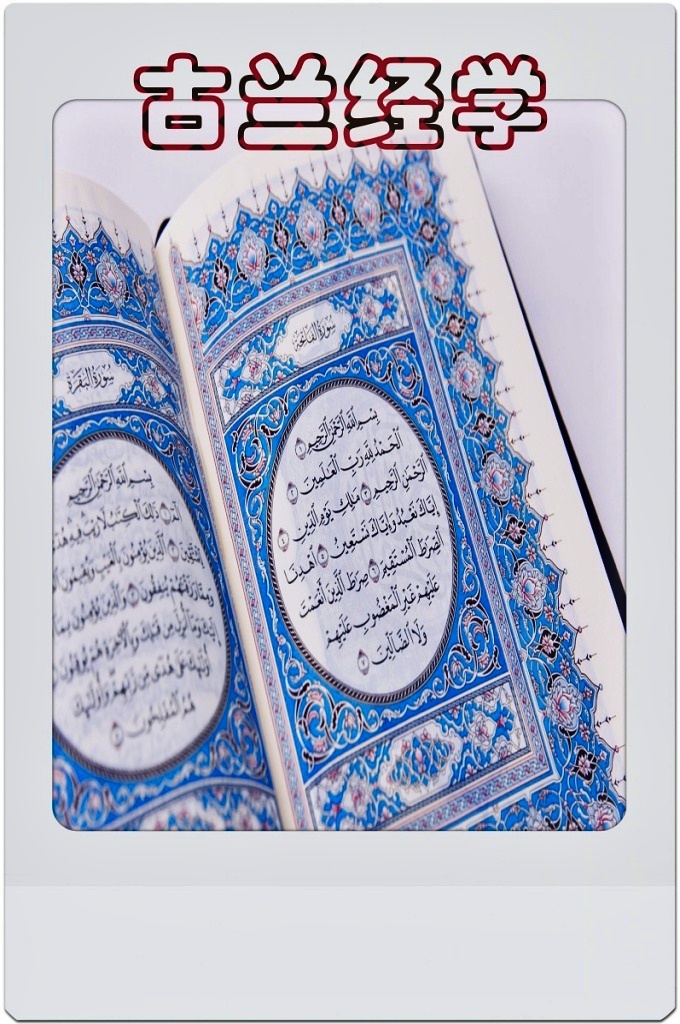 古兰经学
سورة الفاتحة
بسم الله الرحمن الرحيم ١
الحمد لله رب العلمين ٢
الرحمن الرحيم ٣ ملك يوم الدين ٤
إياك نعبد وإياك نستعين ٥ اهدنا
الصرط المستقيم ٦ صرط الذين أنعمت
عليهم غير المغضوب عليهم
ولا الضالين ٧
سورة البقرة
بسم الله الرحمن الرحيم
الم ١ ذلك الكتب لا ريب فيه هدى
للمتقين ٢ الذين يؤمنون بالغيب ويقيمون
ومما رزقنهم ينفقون ٣ والذين يؤمنون بما
إليك وما أنزل من قبلك وبالآخرة هم يوقنون
أولئك على هدى من ربهم وأولئك
هم المفلحون ٥